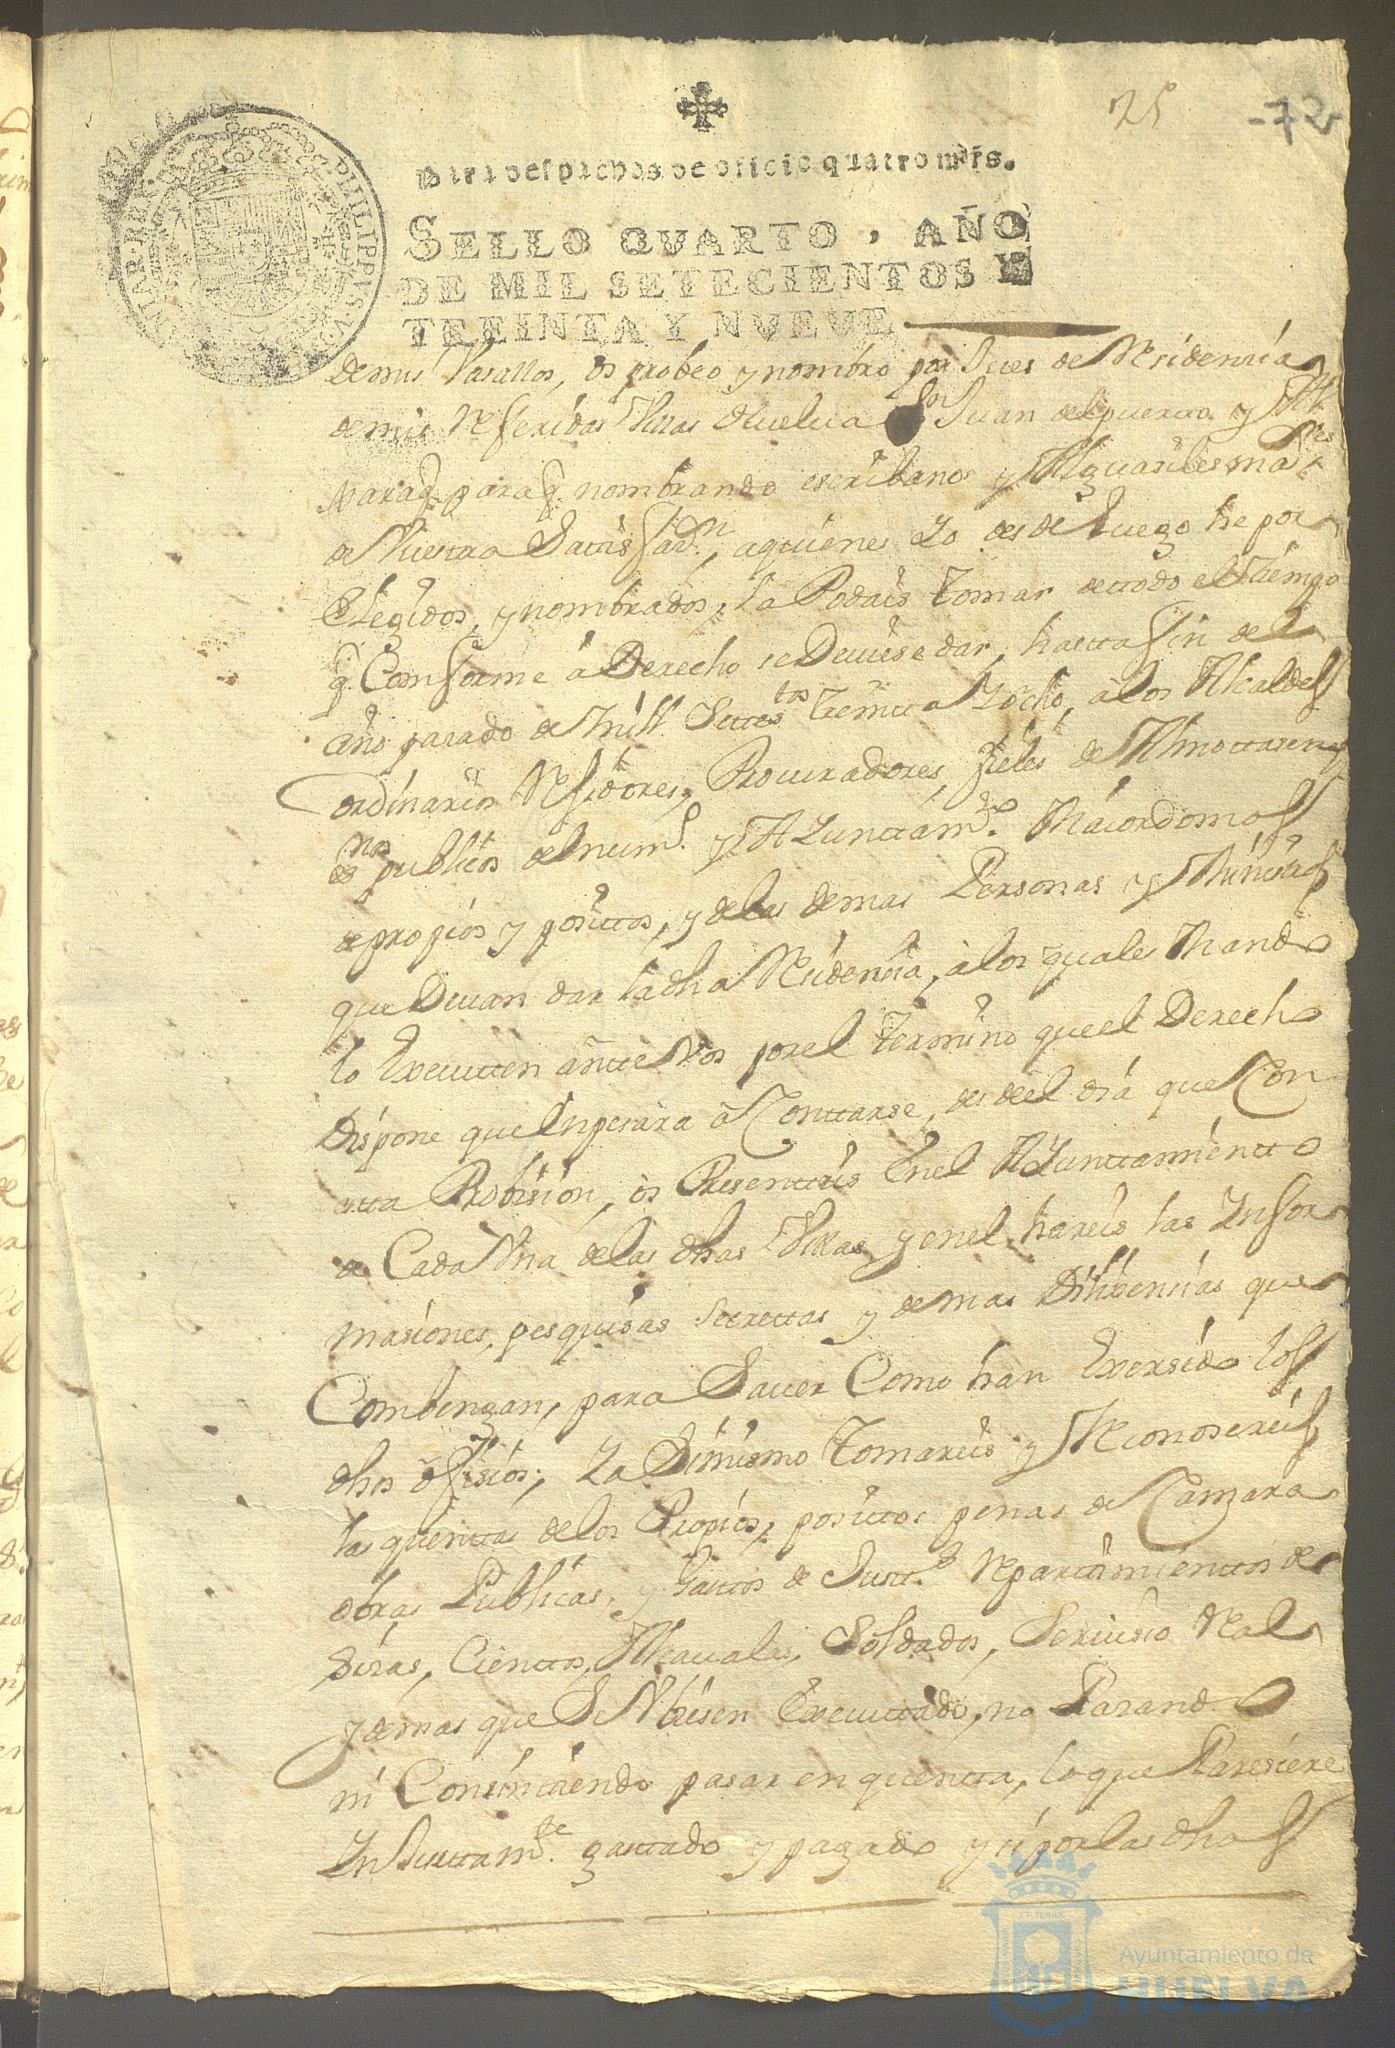 25
-72
Para despachos de oficio quatro mrs.
SELLO QVARTO, AÑO
DE MIL SETECIENTOS Y
TREINTA Y NVEVE
PHILIPPVS V
de mis Vasallos, os probeo y nombro por Jues de Residencia
de mis Referidas Villas Huelva Sn Juan del puerto y
paraq nombrando escribanos y Alguasiles mares
de Vuestra Satisfacn, aquienes Yo desde luego he por
Elegidos, y nombrados, la Podais tomar de ttodo el tiempo
q Comforme â Derecho se Deviese dar, hasta fin del
año pasado de mill Settestos treinta Y ocho, â los Alcaldes
ordinarios Residores, Procuradores, fieles de Almottasen
esnos publicos del numo y AYunttamto Maiordomos
de propios y positos, y de las demas Personas y Ministros
que Devan dar la dha Residencia, â los quales Mando
lo Executten antte Vos por el termino que el Derecho
Dispone que Enpesara â Conttarse, desde el dia que Con
estta Probision, os Presentteis En el AYunttamientto
de Cada Una de las dhas Villas, y en el hareis las Infor
masiones, pesquisas secrettas y demas Dilixencias que
Combengan, para Saver Como han Exersido los
dhos ofisios; Y asimismo tomareis y Reconosereis
las quenttas de los Propios, posittos penas de Camara
obras Publicas, y Gasttos de Justta Reparttimienttos de
sisas, Cienttos, Alcavalas, Soldados, Servisio Real
y demas que Se Ubiesen Executtado, no Pasando
ni Consinttiendo pasar en quentta, lo que Paresiere
Injusttamte gasttado y pagado y si por las dhas
Ayuntamiento de
HUELVA